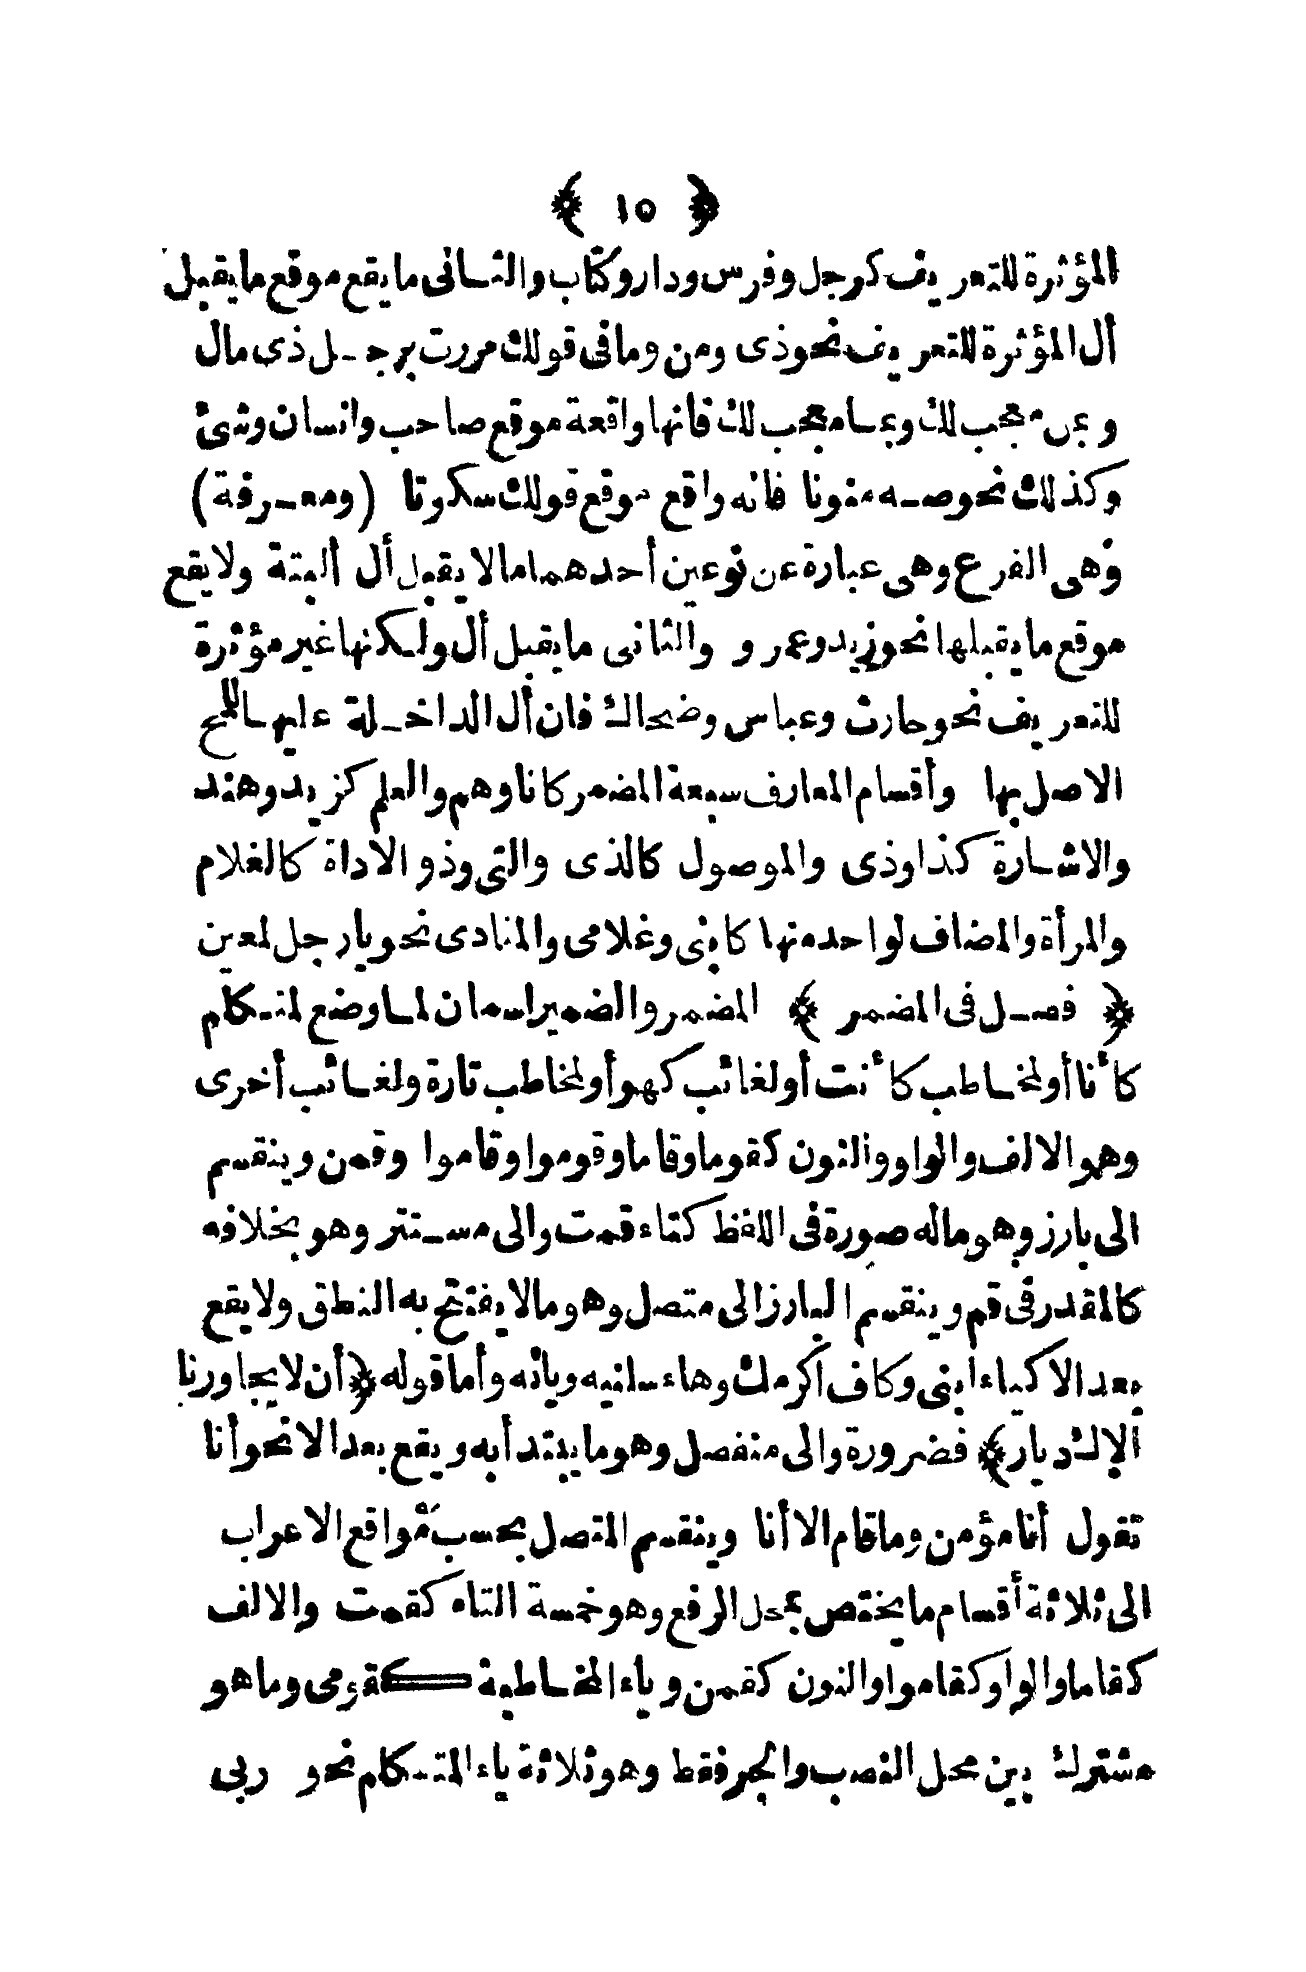 ﴿ ١٥ ﴾
المؤثرة للتعريف كرجل وفرس ودار وكتاب والثانى ما يقع موقع ما يقبل
أل المؤثرة للتعريف نحو ذى ومن وما فى قولك مررت برجل ذى مال
وبمن معجب لك وبما معجب لك فانها واقعة موقع صاحب وانسان وشئ
وكذلك نحو صه منونا فانه واقع موقع قولك سكوتا (ومعرفة)
وهى الفرع وهى عبارة عن نوعين أحدهما ما لا يقبل أل ألبتة ولا يقع
موقع ما يقبلها نحو زيد وعمرو والثانى ما يقبل أل ولكنها غير مؤثرة
للتعريف نحو حارث وعباس وضحاك فان أل الداخلة عليها للمح
الاصل بها وأقسام المعارف سبعة المضمر كانا وهم والعلم كزيد وهند
والاشارة كذا وذى والموصول كالذى والتى وذو الاداة كالغلام
والمرأة والمضاف لواحد منها كابنى وغلامى والمنادى نحو يا رجل لمعين
﴿ فصل فى المضمر ﴾ المضمر والضمير اسمان لما وضع لمتكلم
كأنا أو لمخاطب كأنت أو لغائب كهو أو لمخاطب تارة ولغائب أخرى
وهو الالف والواو والنون كقوما وقاما وقوموا وقاموا وقمن وينقسم
الى بارز وهو ماله صورة فى اللفظ كتاء قمت والى مستتر وهو بخلافه
كالمقدر فى قم وينقسم البارز الى متصل وهو ما لا يفتتح به النطق ولا يقع
بعد الا كياء ابنى وكاف أكرمك وهاء سلنيه ويائه وأما قوله ﴿أن لا يجاورنا
ألاك ديار﴾ فضرورة والى منفصل وهو ما يبتدأ به ويقع بعد الا نحو أنا
تقول أنا مؤمن وما قام الا أنا وينقسم المتصل بحسب مواقع الاعراب
الى ثلاثة أقسام ما يختص بمحل الرفع وهو خمسة التاء كقمت والالف
كقاما والواو كقاموا والنون كقمن وياء المخاطبة كقومى وما هو
مشترك بين محل النصب والجر فقط وهو ثلاثة ياء المتكلم نحو ربى